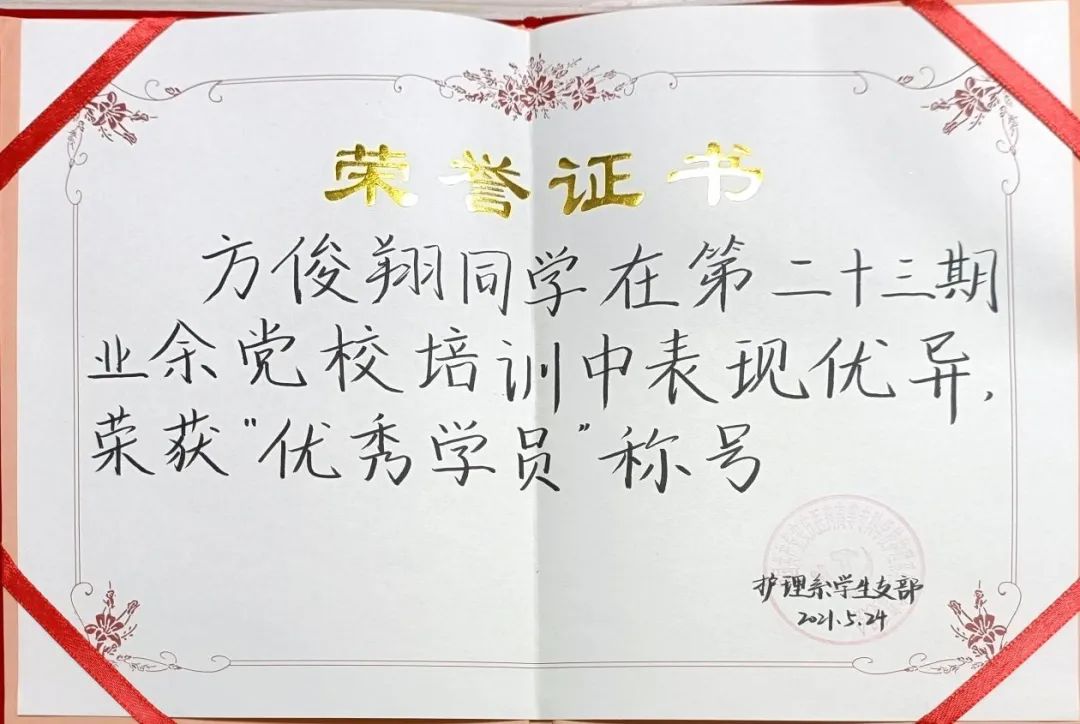 荣誉证书
方俊翔同学在第二十三期
业余党校培训中表现优异,
荣获“优秀学员”称号
护理系学生支部
2021.5.24